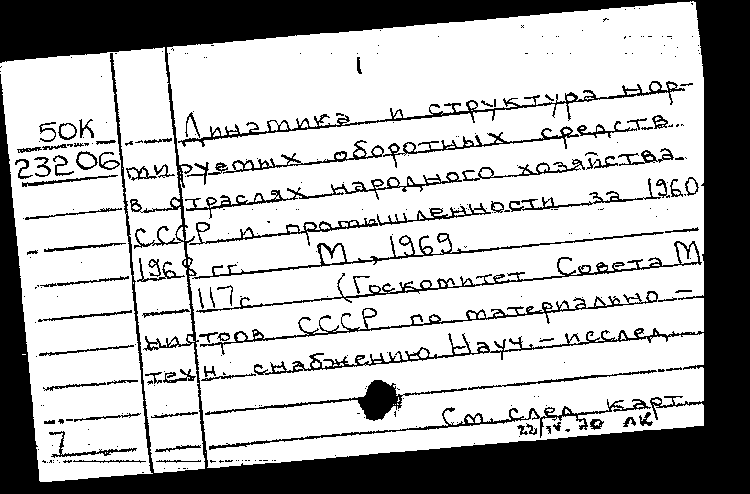 1
50К
23206
Динамика и структура нор-
мируемых оборотных средств
в отраслях народного хозяйства
СССР и промышленности за 1960-
1968 гг. М., 1969.
117с. (Госкомитет Совета Ми
нистров СССР по материально-
техн. снабжению. Науч.-исслед.
См. след. карт.
7
22/IV-70 ЛК